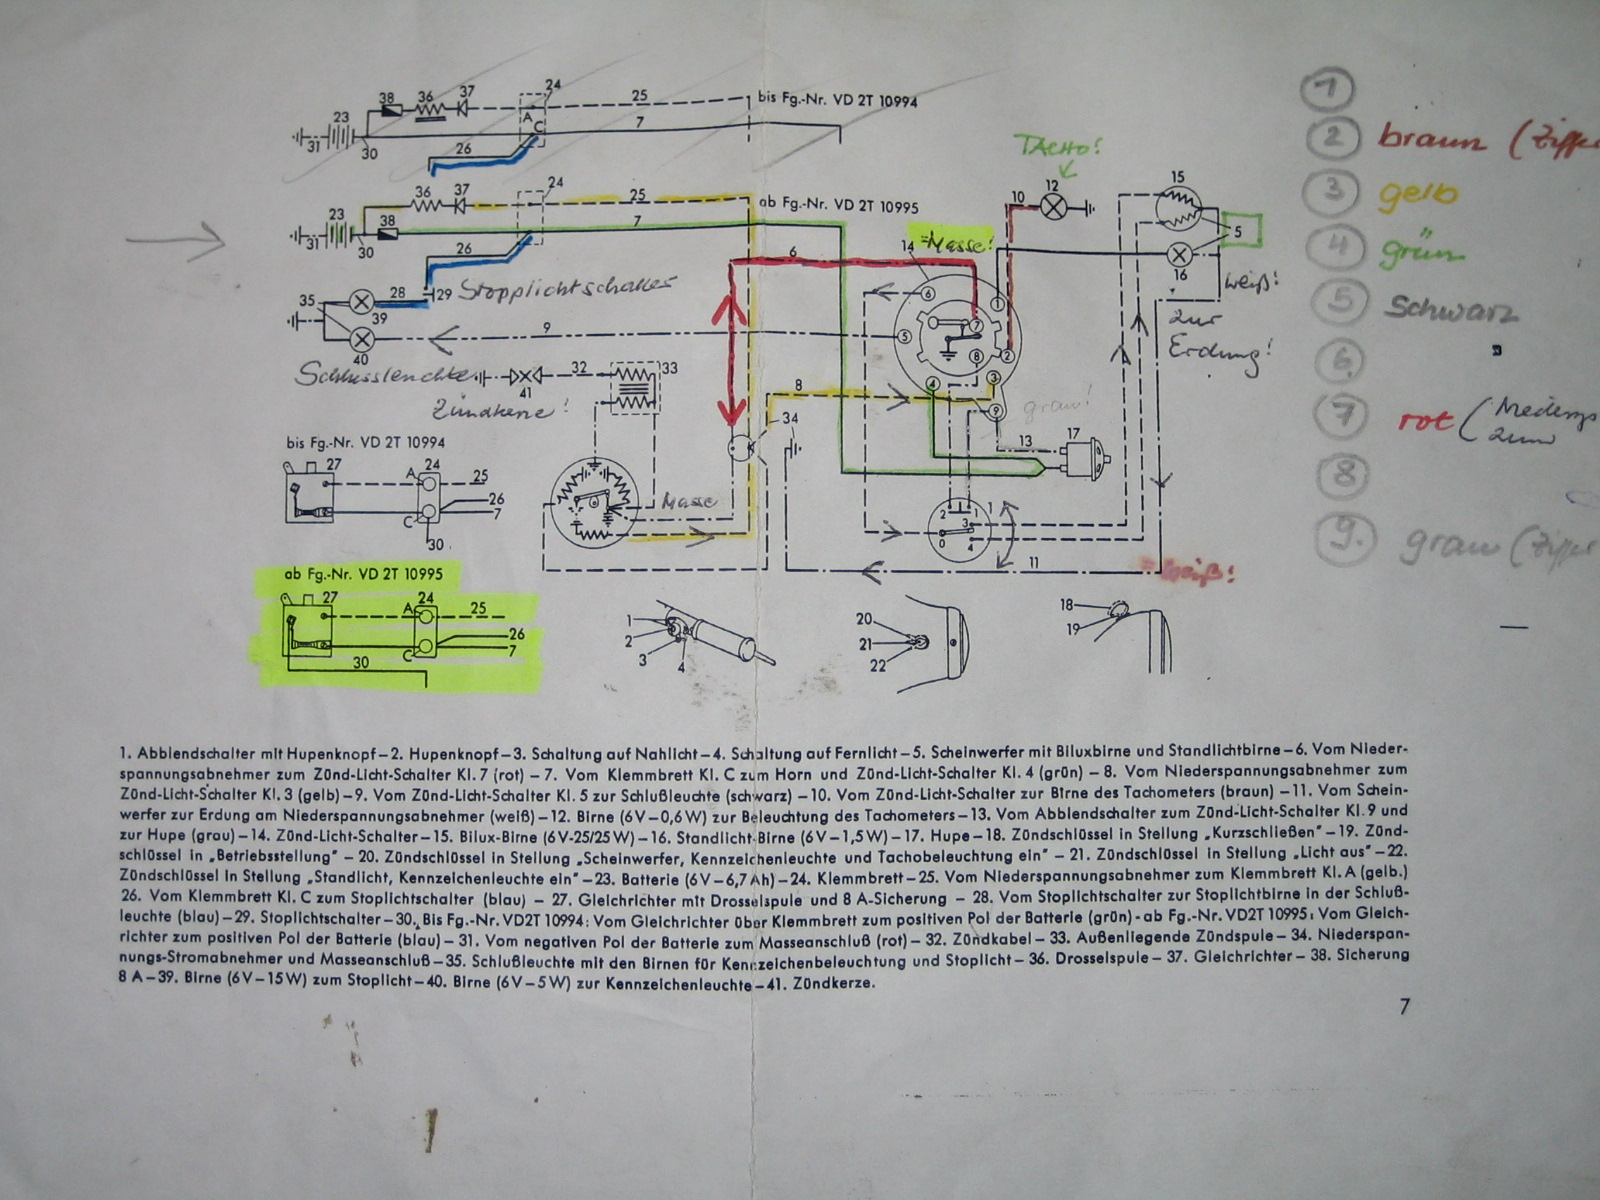 38 36 37 24 25 bis Fg.-Nr. VD 2T 10994
23 A C 7
31 30 26
TACHO!
36 37 24 25 ab Fg.-Nr. VD 2T 10995
23 38 7
31 30 26
10 12 15
=Masse!
14 6 5
16
35 28 29 Stopplichtschalter
39 9
40
weiß!
zur
Erdung!
6 1 7 5 8 2 4 3 9
Schlussleuchte 41 32 33
Zündkerze!
8 34 grau!
13 17
bis Fg.-Nr. VD 2T 10994
27 A 24 25
26
C 7
30
Masse
2 1 1
3
0 4
11 = weiß!
ab Fg.-Nr. VD 2T 10995
27 A 24 25
26
C 7
30
1 2 3 4
20 21 22
18 19
1
2 braun (Ziffer
3 gelb
4 grün
5 Schwarz
6
7 rot (
8
9. grau (Ziffer
1. Abblendschalter mit Hupenknopf–2. Hupenknopf–3. Schaltung auf Nahlicht–4. Schaltung auf Fernlicht–5. Scheinwerfer mit Biluxbirne und Standlichtbirne–6. Vom Nieder-
spannungsabnehmer zum Zünd-Licht-Schalter Kl. 7 (rot) – 7. Vom Klemmbrett Kl. C zum Horn und Zünd-Licht-Schalter Kl. 4 (grün) – 8. Vom Niederspannungsabnehmer zum
Zünd-Licht-Schalter Kl. 3 (gelb) –9. Vom Zünd-Licht-Schalter Kl. 5 zur Schlußleuchte (schwarz) –10. Vom Zünd-Licht-Schalter zur Birne des Tachometers (braun) –11. Vom Schein-
werfer zur Erdung am Niederspannungsabnehmer (weiß) –12. Birne (6V–0,6W) zur Beleuchtung des Tachometers–13. Vom Abblendschalter zum Zünd-Licht-Schalter Kl. 9 und
zur Hupe (grau) –14. Zünd-Licht-Schalter–15. Bilux-Birne (6V-25/25W) –16. Standlicht-Birne (6V–1,5W) –17. Hupe–18. Zündschlüssel in Stellung „Kurzschließen“ –19. Zünd-
schlüssel in „Betriebsstellung“ – 20. Zündschlüssel in Stellung „Scheinwerfer, Kennzeichenleuchte und Tachobeleuchtung ein“ – 21. Zündschlüssel in Stellung „Licht aus“ –22.
Zündschlüssel in Stellung „Standlicht, Kennzeichenleuchte ein“ –23. Batterie (6V–6,7 Ah) –24. Klemmbrett–25. Vom Niederspannungsabnehmer zum Klemmbrett Kl. A (gelb.)
26. Vom Klemmbrett Kl. C zum Stoplichtschalter (blau) – 27. Gleichrichter mit Drosselspule und 8 A-Sicherung – 28. Vom Stoplichtschalter zur Stoplichtbirne in der Schluß-
leuchte (blau)–29. Stoplichtschalter–30. Bis Fg.-Nr. VD2T 10994: Vom Gleichrichter über Klemmbrett zum positiven Pol der Batterie (grün)-ab Fg.-Nr. VD2T 10995: Vom Gleich-
richter zum positiven Pol der Batterie (blau) – 31. Vom negativen Pol der Batterie zum Masseanschluß (rot)– 32. Zündkabel– 33. Außenliegende Zündspule– 34. Niederspan-
nungs-Stromabnehmer und Masseanschluß–35. Schlußleuchte mit den Birnen für Kennzeichenbeleuchtung und Stoplicht– 36. Drosselspule– 37. Gleichrichter– 38. Sicherung
8 A–39. Birne (6V–15W) zum Stoplicht–40. Birne (6V–5W) zur Kennzeichenleuchte–41. Zündkerze.
7